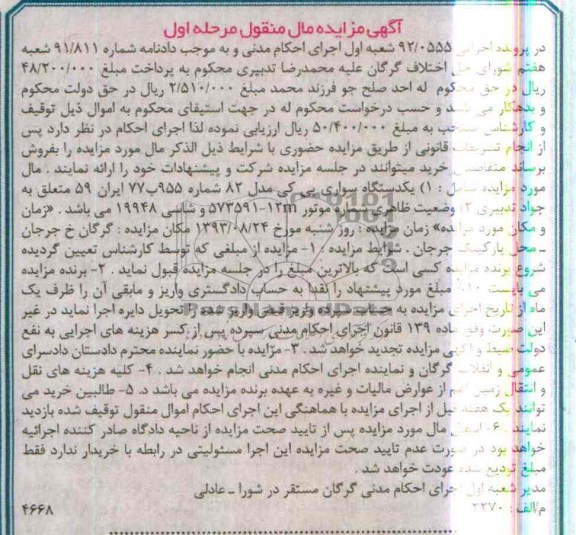 آگهی مزایده مال منقول مرحله اول
در پرونده اجرایی ۹۲/۰۵۵۵ شعبه اول اجرای احکام مدنی و به موجب دادنامه شماره ۹۱/۸۱۱ شعبه
هفتم شورای حل اختلاف گرگان علیه محمدرضا تدبیری محکوم به پرداخت مبلغ ۴۸/۲۰۰/۰۰۰
ریال در حق محکوم له احد صلح جو فرزند محمد مبلغ ۲/۵۱۰/۰۰۰ ریال در حق دولت محکوم
و بدهکار می باشد و حسب درخواست محکوم له در جهت استیفای محکوم به اموال ذیل توقیف
و کارشناس منتخب به مبلغ ۵۰/۴۰۰/۰۰۰ ریال ارزیابی نموده لذا اجرای احکام در نظر دارد پس
از انجام تشریفات قانونی از طریق مزایده حضوری با شرایط ذیل الذکر مال مورد مزایده را بفروش
برساند متقاضیان خرید میتوانند در جلسه مزایده شرکت و پیشنهادات خود را ارائه نمایند . مال
مورد مزایده شامل : ۱) یکدستگاه سواری پی کی مدل ۸۲ شماره ۹۵۵ب۷۷ ایران ۵۹ متعلق به
جواد تدبیری ۲) وضعیت ظاهری موتور ۵۷۳۵۹۱-۱۲m و شاسی ۱۹۹۴۸ می باشد . «زمان
و مکان مورد مزایده» زمان مزایده : روز شنبه مورخ ۱۳۹۳/۰۸/۲۴ مکان مزایده : گرگان خ جرجان
ـ محل پارکینگ جرجان . شرایط مزایده : ۱- مزایده از مبلغی که توسط کارشناس تعیین گردیده
شروع برنده مزایده کسی است که بالاترین مبلغ را در جلسه مزایده قبول نماید . ۲- برنده مزایده
می بایست ۱۰٪ مبلغ مورد پیشنهاد را نقدا به حساب دادگستری واریز و مابقی آن را ظرف یک
ماه از تاریخ اجرای مزایده به حساب سپرده واریز قبض تحویل دایره اجرا نماید در غیر
این صورت وفق ماده ۱۳۹ قانون اجرای احکام مدنی سپرده پس از کسر هزینه های اجرایی به نفع
دولت ضبط و آگهی مزایده تجدید خواهد شد . ۳- مزایده با حضور نماینده محترم دادستان دادسرای
عمومی و انقلاب گرگان و نماینده اجرای احکام مدنی انجام خواهد شد . ۴- کلیه هزینه های نقل
و انتقال رسمی اعم از عوارض مالیات و غیره به عهده برنده مزایده می باشد د. ۵- طالبین خرید می
توانند یک هفته قبل از اجرای مزایده با هماهنگی این اجرای احکام اموال منقول توقیف شده بازدید
نمایند . ۶- انتقال مال مورد مزایده پس از تایید صحت مزایده از ناحیه دادگاه صادر کننده اجرائیه
خواهد بود در صورت عدم تایید صحت مزایده این اجرا مسئولیتی در رابطه با خریدار ندارد فقط
مبلغ تودیع شده عودت خواهد شد .
مدیر شعبه اول اجرای احکام مدنی گرگان مستقر در شورا ـ عادلی
م/الف : ۲۲۷۰
۴۶۶۸